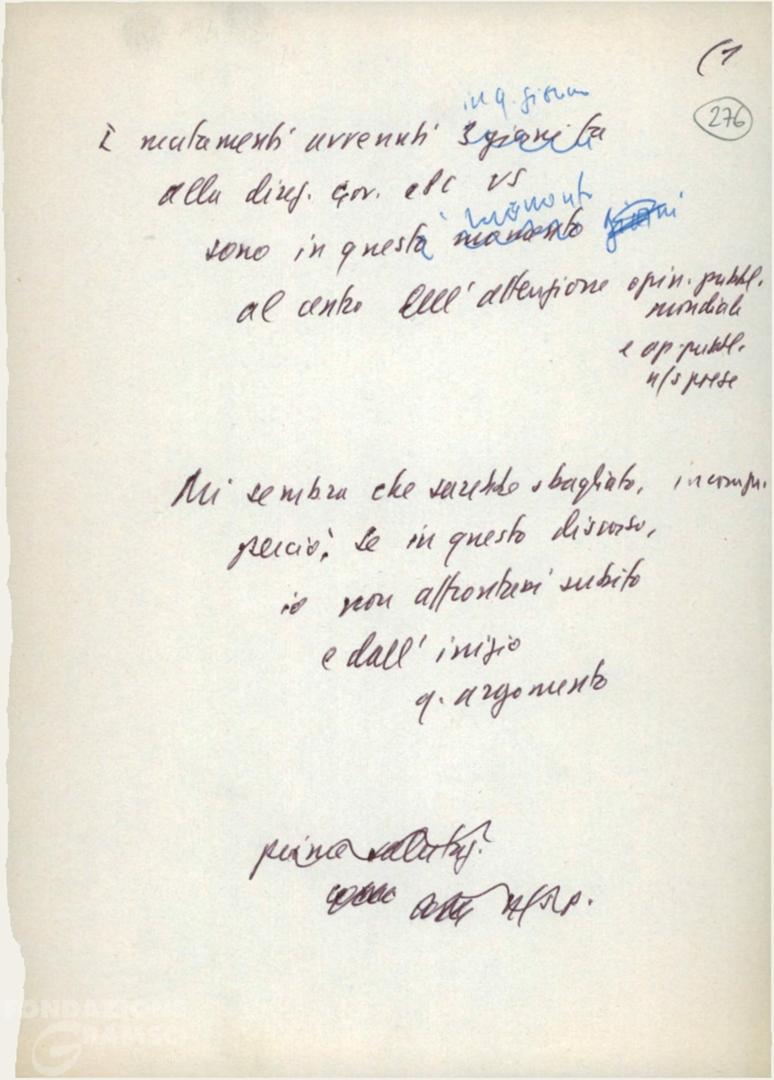 (1
276
in q. giorni
I mutamenti avvenuti 3 giorni fa
alla direz. Gov. e PC US
momento
sono in questo momento giorni
al centro dell'attenzione opin. pubbl.
mondiale
e op. pubbl.
n/s paese
Mi sembra che sarebbe sbagliato, incompr.
perciò, se in questo discorso,
io non affrontassi subito
e dall'inizio
q. argomento
prima
n/s p.
FONDAZIONE
GRAMSCI